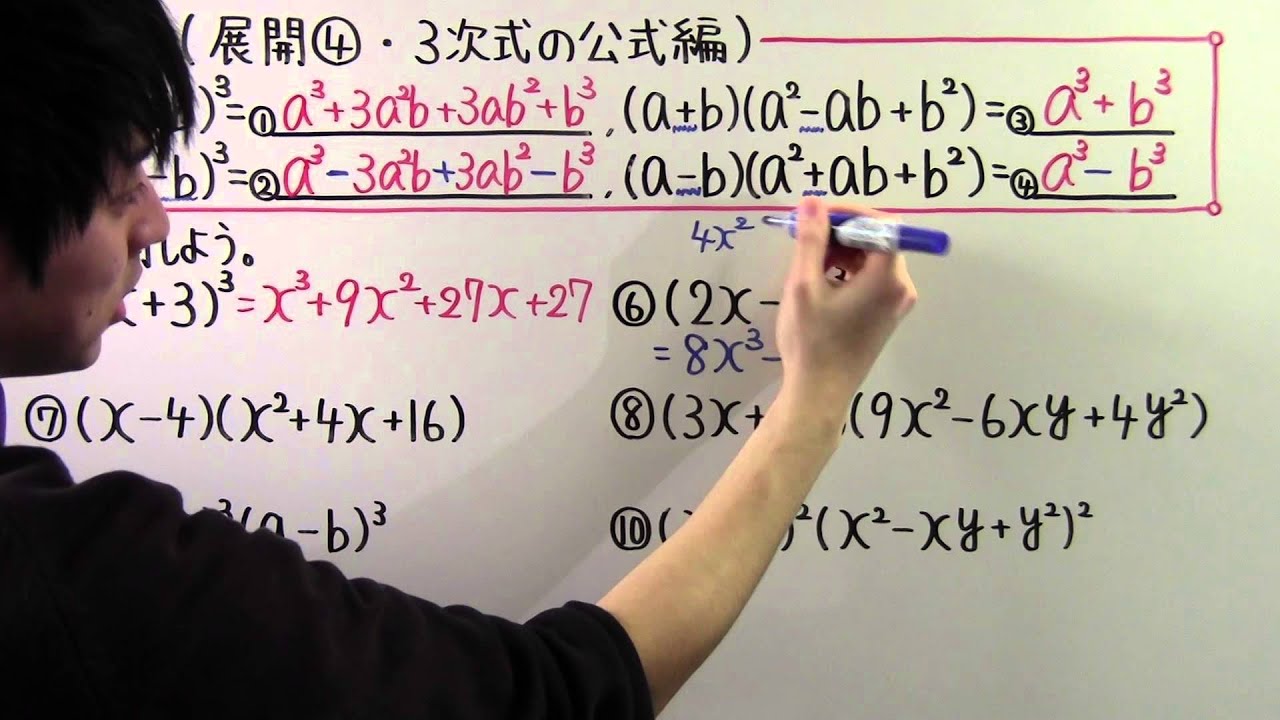 (展開④・3次式の公式編)
)³=①a³+3a²b+3ab²+b³, (a+b)(a²-ab+b²)=③a³+b³
-b)³=②a³-3a²b+3ab²-b³, (a-b)(a²+ab+b²)=④a³-b³
しよう。
4x²
x+3)³=x³+9x²+27x+27
⑥(2x-
=8x³-
⑦(x-4)(x²+4x+16)
⑧(3x+ (9x²-6xy+4y²)
³(a-b)³
⑩( )²(x²-xy+y²)²